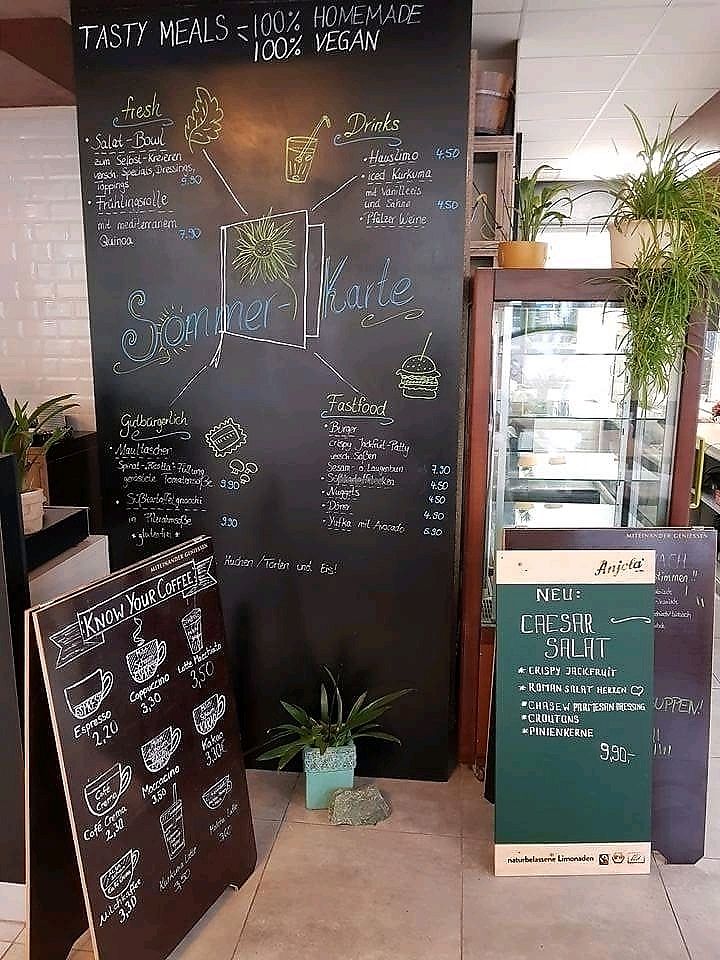 TASTY MEALS = 100% HOMEMADE
100% VEGAN
fresh
• Salat-Bowl
zum Selbst-Kreieren
versch. Specials, Dressings,
Toppings 9.90
• Frühlingsrolle
mit mediterranem
Quinoa 7.90
Drinks
• Hauslimo 4.50
• iced Kurkuma
mit Vanilleeis
und Sahne 4.50
• Pfälzer Weine
Sommer-Karte
Gutbürgerlich
• Maultaschen
Spinat-Ricotta-Füllung
geröstete Tomatensoße 9.90
• Süßkartoffelgnocchi
in Pilzrahmsoße 9.90
*glutenfrei*
Fastfood
• Burger
crispy Jackfruit-Patty
versch. Soßen
Sesam- o. Laugenbun 7.90
• Süßkartoffelecken 4.50
• Nuggets 4.50
• Döner 4.90
• Yufka mit Avocado 5.90
Kuchen/Torten und Eis!
MITEINANDER GENIESSEN
KNOW YOUR COFFEE!
Espresso
2,20
Cappuccino
3,30
Latte Macchiato
3,50
Café Crema
Moccacino
3,50
Kakao
3,30€
Milchkaffee
3,30
Kurkuma Latte
3,50
Matcha Latte
MITEINANDER GENIESSEN
Anjola
NEU:
CAESAR
SALAT
* CRISPY JACKFRUIT
* ROMAN SALAT HERZEN
* CHASEW PARMESAN DRESSING
* CROUTONS
* PINIENKERNE
9,90,-
naturbelassene Limonaden